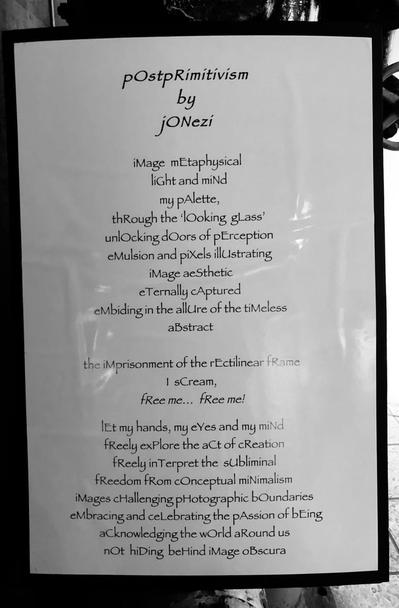 pOstpRimitivism
by
jONezi
iMage mEtaphysical
liGht and miNd
my pAlette,
thRough the 'lOoking gLass'
unlOcking dOors of pErception
eMulsion and piXels illUstrating
iMage aeSthetic
eTernally cAptured
eMbiding in the allUre of the tiMeless
aBstract
the iMprisonment of the rEctilinear fRame
I sCream,
fRee me... fRee me!
lEt my hands, my eYes and my miNd
fReely exPlore the aCt of cReation
fReely inTerpret the sUbliminal
fReedom fRom cOnceptual miNimalism
iMages cHallenging pHotographic bOundaries
eMbracing and ceLebrating the pAssion of bEing
aCknowledging the wOrld aRound us
nOt hiDing beHind iMage oBscura